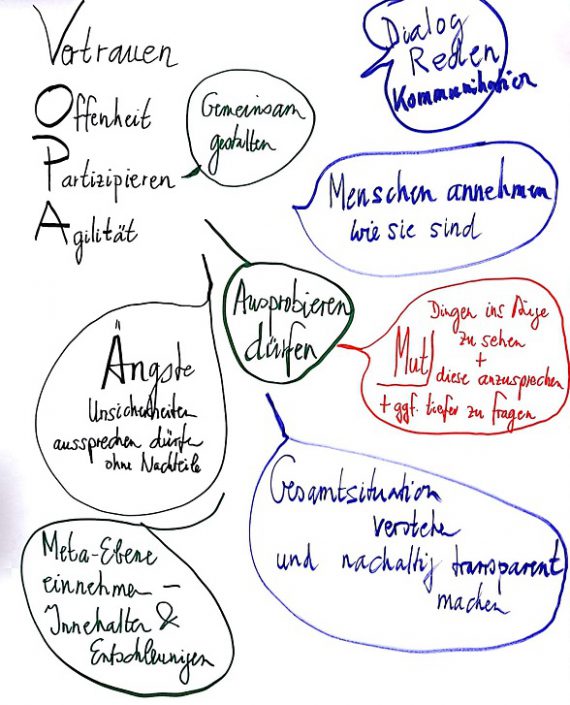 Vertrauen
Offenheit
Partizipieren
Agilität
Gemeinsam
gestalten
Dialog
Reden
Kommunikation
Menschen annehmen
wie sie sind
Ausprobieren
dürfen
Dingen ins Auge
zu sehen
Mut +
diese anzusprechen
+ ggf. tiefer zu fragen
Ängste
Unsicherheiten
aussprechen dürfen
ohne Nachteile
Gesamtsituation
verstehen
und nachaltig transparent
machen
Meta-Ebene
einnehmen –
Innehalten &
Entschleunigen